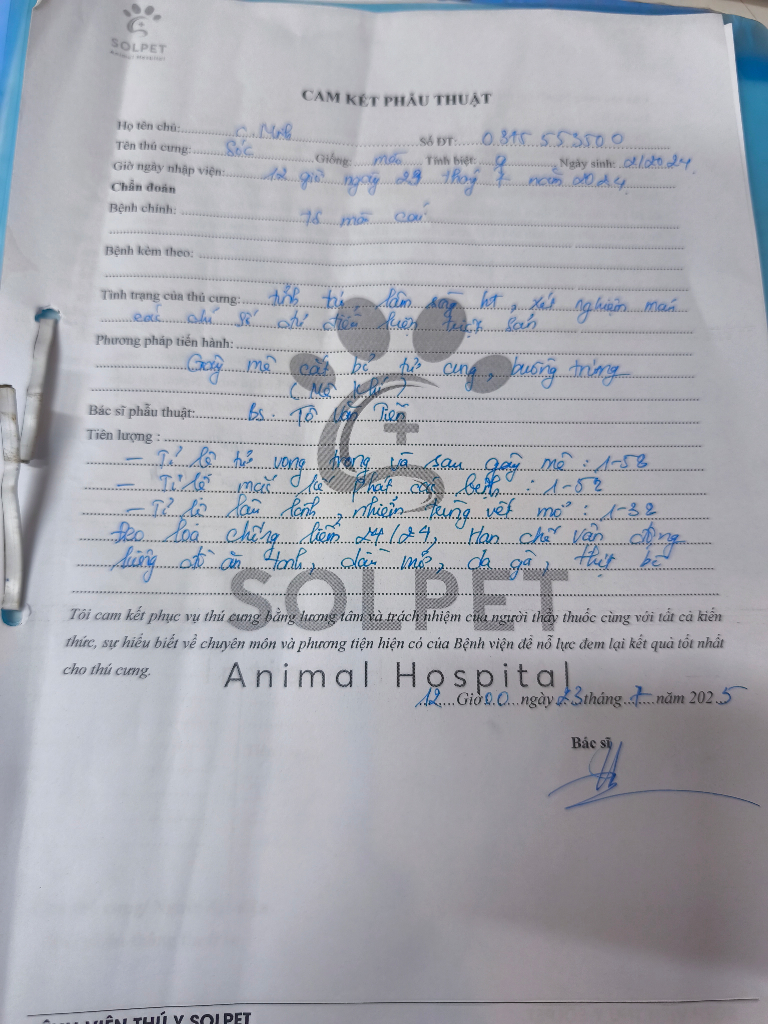 SOLPET
Animal Hospital
CAM KẾT PHẪU THUẬT
Họ tên chủ: C. Số ĐT: 0375 553500
Tên thú cưng: Sóc Giống: mèo Tính biệt: Ngày sinh: 2/2024
Giờ ngày nhập viện: 12 giờ ngày 23 tháng 7 năm 2024
Chẩn đoán
Bệnh chính: TS mèo cái
Bệnh kèm theo:
Tình trạng của thú cưng: tỉnh táo, lâm sàng bt, xét nghiệm máu
các chỉ số đủ điều kiện
Phương pháp tiến hành:
Gây mê cắt bỏ tử cung, buồng trứng
(Mê khí)
Bác sĩ phẫu thuật: Bs. Tô Văn Tiến
Tiên lượng :
- Tỉ lệ tử vong trong và sau gây mê : 1-5%
- Tỉ lệ mắc phát các bệnh : 1-5%
- Tỉ lệ lâu lành, nhiễm trùng vết mổ : 1-3%
Đeo loa chống liếm 24/24, Hạn chế vận động
đồ ăn tanh, dầu mỡ, da gà, thịt bò
SOLPET
Tôi cam kết phục vụ thú cưng bằng lương tâm và trách nhiệm của người thầy thuốc cùng với tất cả kiến
thức, sự hiểu biết về chuyên môn và phương tiện hiện có của Bệnh viện để nỗ lực đem lại kết quả tốt nhất
cho thú cưng.
Animal Hospital
12 Giờ 00 ngày 23 tháng 7 năm 2025
Bác sĩ
VIỆN THÚ Y SOLPET